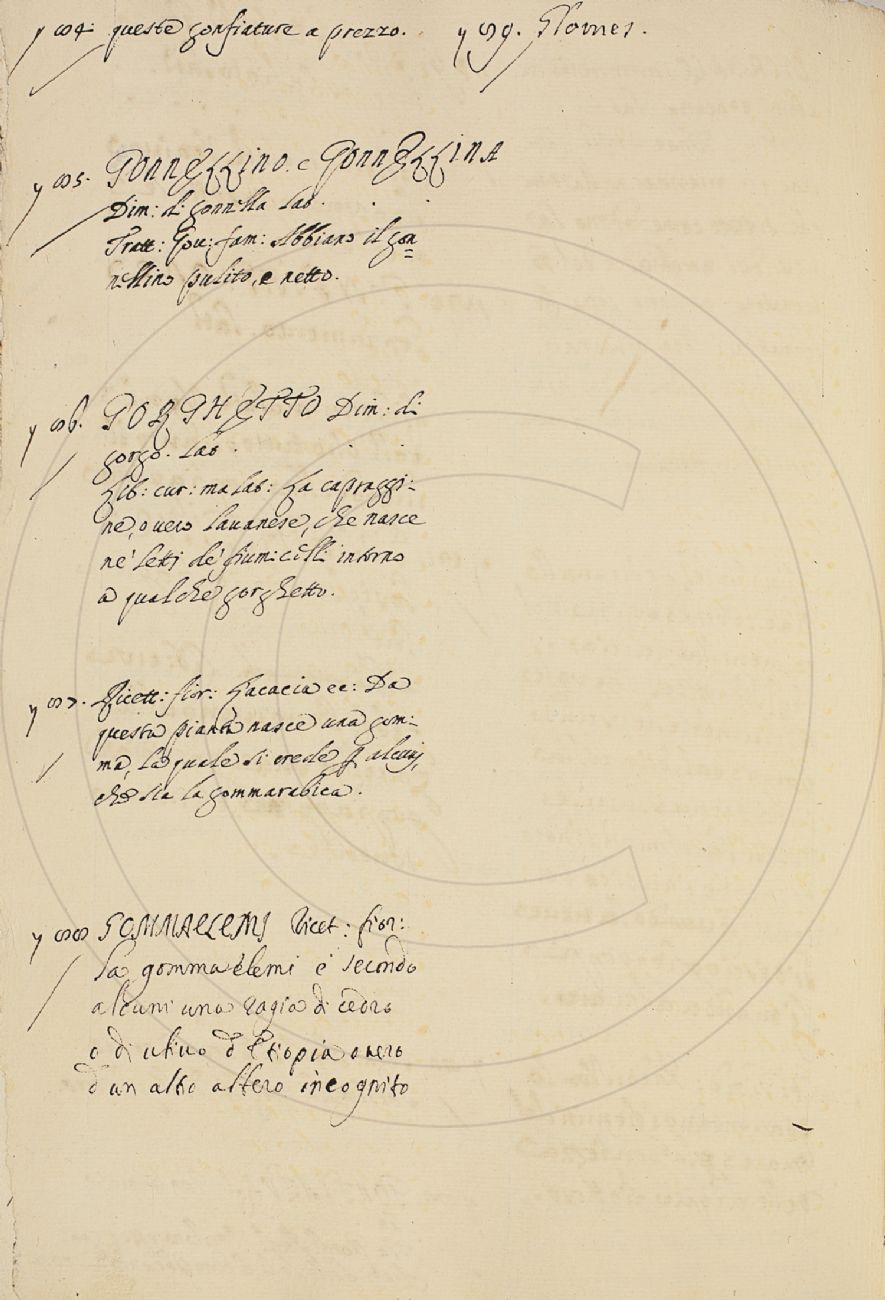 y 884 queste gonfiature a prezzo.
y 89. Glomes.
y 885. GONNELLINO. e GONNELLINA
Dim: di gonnella Lat.
Tratt: Gov: fam: Abbiano il gon=
nellino pulito, e netto.
y 886. GORGHETTO Dim: di
gorgo. Lat.
Lib: cur: malat: La capraggi-
ne, overo lavanese, che nasce
ne' letti de' fiumicelli intorno
a qualche gorghetto.
y 887. Ricett: fior: L'acacia ec: Da
questa pianta nasce una gom-
ma, la quale si crede
che sia la gommarabica.
y 888 GOMMAELEMI Ricet: fior:
La gomma elemi è secondo
alcuni una ragia di cedro
o di ulivo d'Etiopia overo
d'un altro albero incognito